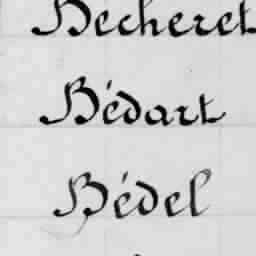 Becheret
Bédart
Bédel